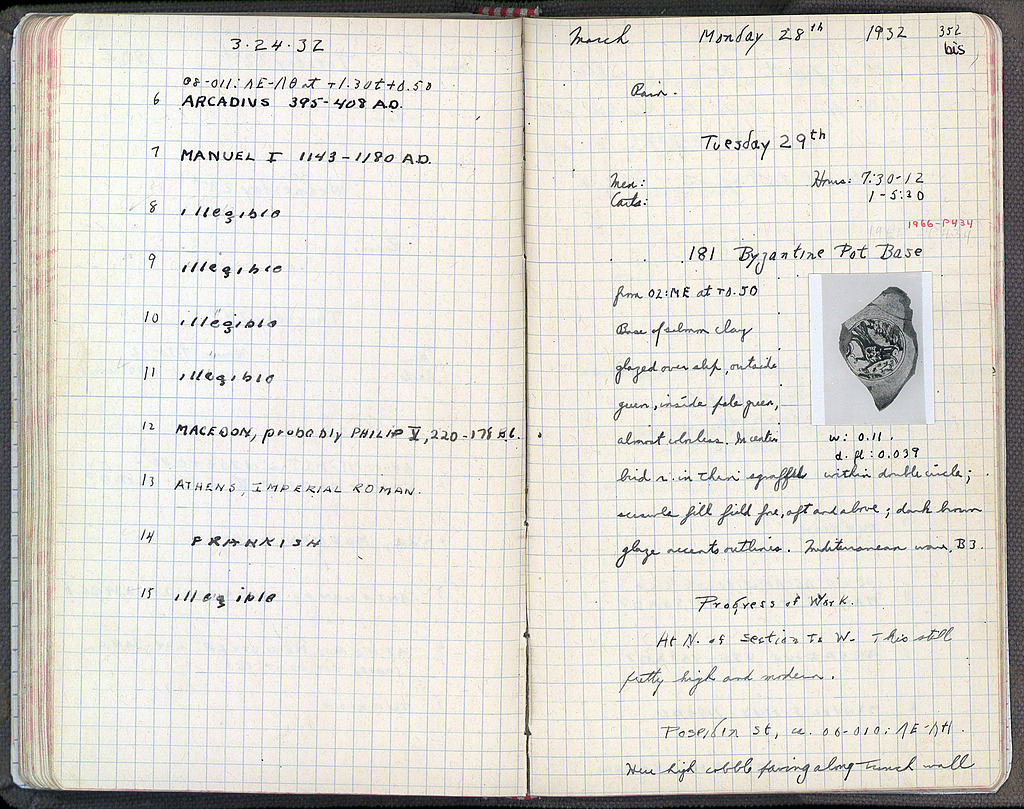 3·24·32
08-011: ΛE-ΛΘ at +1.30 to +0.50
6 ARCADIUS 395-408 A.D.
7 MANUEL I 1143-1180 A.D.
8 illegible
9 illegible
10 illegible
11 illegible
12 MACEDON, probably PHILIP V, 220-178 B.C.
13 ATHENS, IMPERIAL ROMAN.
14 FRANKISH
15 illegible
March Monday 28th 1932 352
bis
Rain.
Tuesday 29th
Men: Hours: 7:30-12
Carts: 1-5:30
1966-P434
181 Byzantine Pot Base
from 02:ME at +0.50
Base of salmon clay
glazed over slip, outside
green, inside pale green,
almost colorless. In center
w: 0.11.
d. fl: 0.039
bird r. in thin sgraffito within double circle;
scrawls fill field fore, aft and above; dark brown
glaze accents outlines. Mediterranean ware, B3.
Progress of Work.
At N. of section to W. This still
pretty high and modern.
Poseidon St, ca. 06-010: ΛE-ΛH.
Here high cobble paving along trench wall